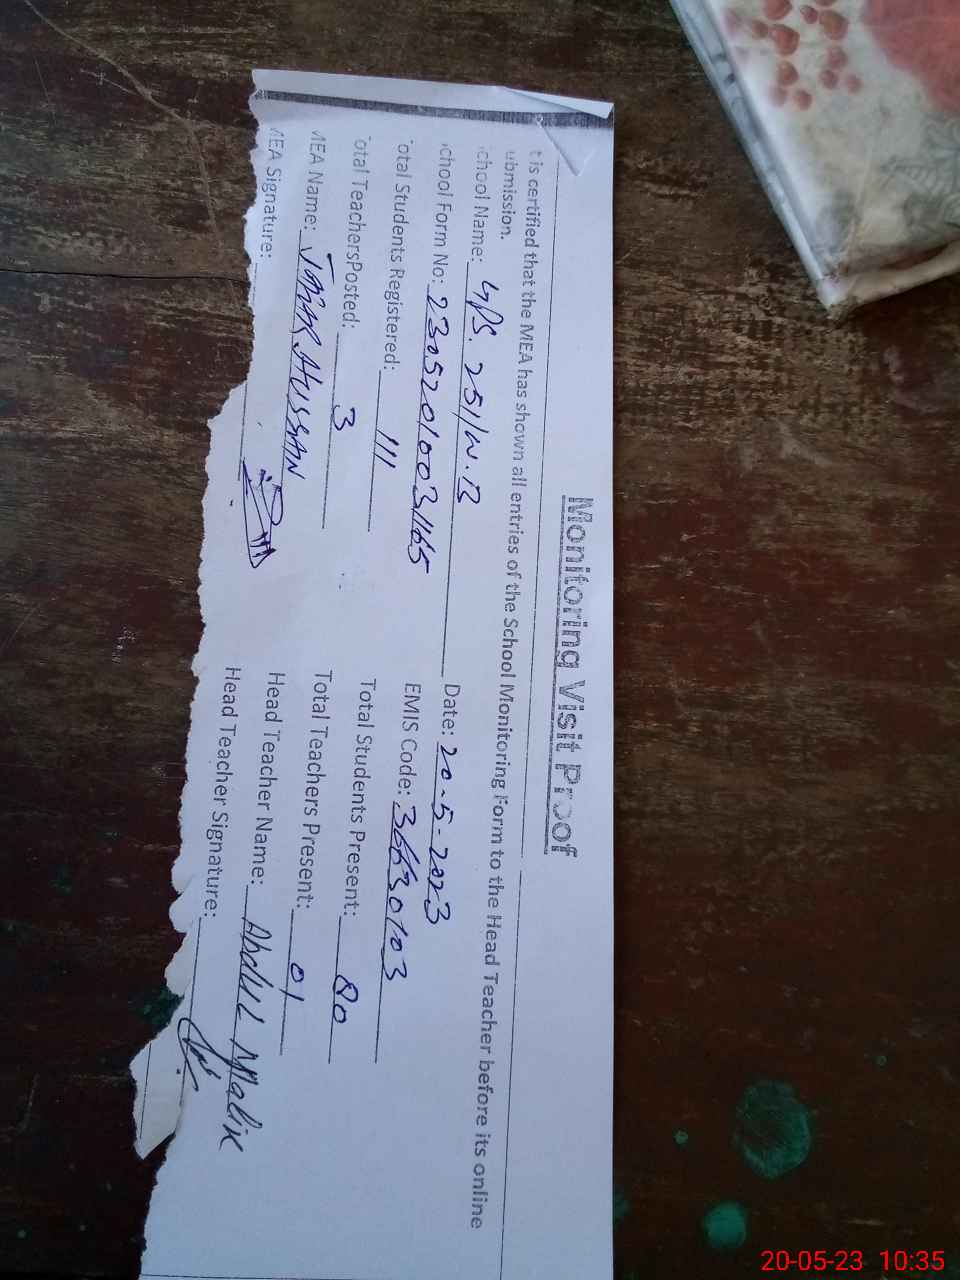 Monitoring Visit Proof
t is certified that the MEA has shown all entries of the School Monitoring Form to the Head Teacher before its online
ubmission.
chool Name: GPS. 251/W.B Date: 20-5-2023
chool Form No: 23052010031165 EMIS Code: 36630103
otal Students Registered: 111 Total Students Present: 80
otal TeachersPosted: 3 Total Teachers Present: 01
MEA Name: HUSSAN Head Teacher Name: Abdul Malik
MEA Signature: Head Teacher Signature:
20-05-23 10:35